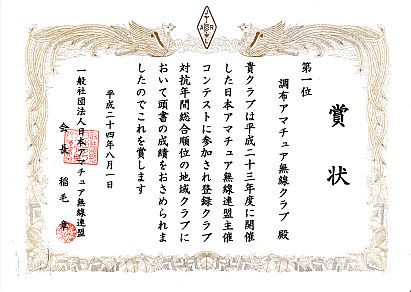 賞状
第一位
調布アマチュア無線クラブ 殿
貴クラブは平成二十三年度に開催
した日本アマチュア無線連盟主催
コンテストに参加され登録クラブ
対抗年間総合順位の地域クラブに
おいて頭書の成績をおさめられま
したのでこれを賞します
平成二十四年八月一日
一般社団法人日本アマチュア無線連盟
会長 稲毛 章